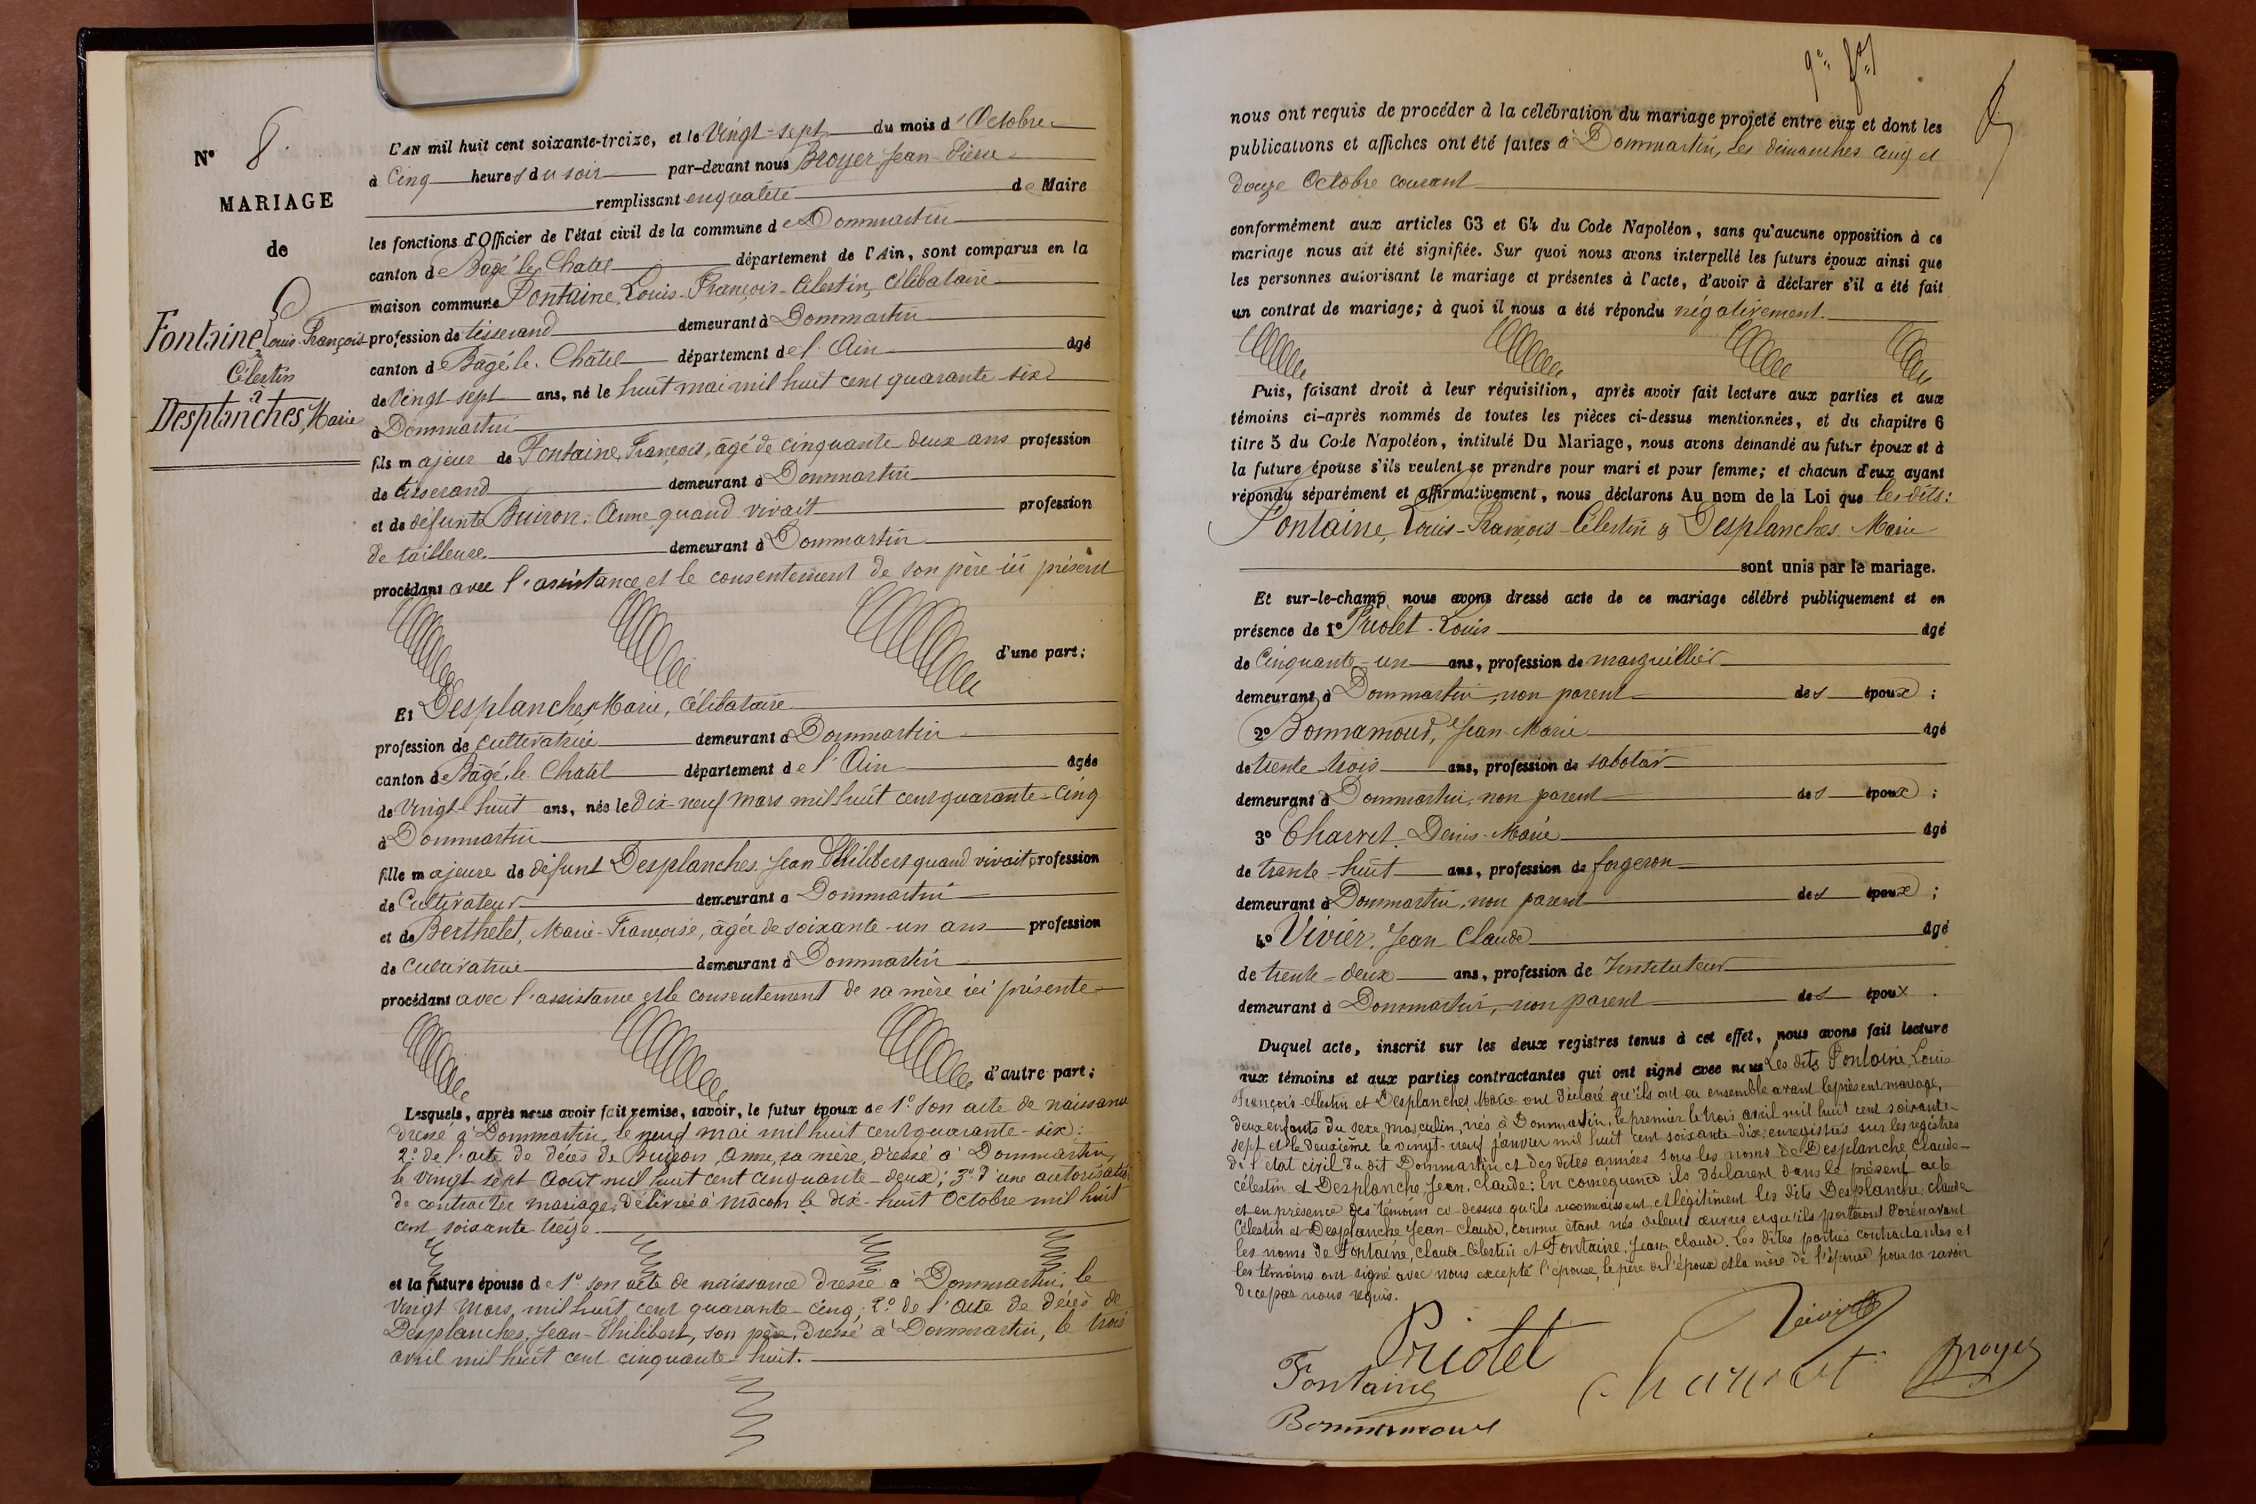 N° 8.
MARIAGE
de
Fontaine, Louis-François
Célestin
&
Desplanches, Marie
L'AN mil huit cent soixante-treize, et le Vingt-sept du mois d'Octobre
à Cinq heures du soir par-devant nous Broyer Jean-Pierre
remplissant en qualité de Maire
les fonctions d'Officier de l'état civil de la commune de Dommartin
canton de Bagé-le-Chatel département de l'Ain, sont comparus en la
maison commune Fontaine, Louis-François-Célestin, Célibataire
profession de tisserand demeurant à Dommartin
canton de Bagé-le-Chatel département de l'Ain âgé
de Vingt sept ans, né le huit mai mil huit cent quarante six
à Dommartin
fils majeur de Fontaine, François, âgé de cinquante deux ans profession
de tisserand demeurant à Dommartin
et de défunte Buiron, Anne quand vivait profession
de tailleuse demeurant à Dommartin
procédant avec l'assistance et le consentement de son père ici présent
d'une part;
Et Desplanches Marie, Célibataire
profession de cultivatrice demeurant à Dommartin
canton de Bagé-le-Chatel département de l'Ain âgée
de Vingt-huit ans, née le Dix-neuf Mars mil huit cent quarante-cinq
à Dommartin
fille majeure de défunt Desplanches Jean Philibert quand vivait profession
de Cultivateur demeurant à Dommartin
et de Berthelet, Marie-Françoise, âgée de soixante-un ans profession
de Cultivatrice demeurant à Dommartin
procédant avec l'assistance et le consentement de sa mère ici présente
d'autre part;
Lesquels, après nous avoir fait remise, savoir, le futur époux de 1° son acte de naissance
dressé à Dommartin, le neuf mai mil huit cent quarante-six;
2° de l'acte de décès de Buiron, Anne, sa mère, dressé à Dommartin,
le vingt sept Août mil huit cent cinquante-deux; 3° d'une autorisation
de contracter mariage, délivrée à Mâcon le dix-huit Octobre mil huit
cent soixante treize.
et la future épouse de 1° son acte de naissance dressé à Dommartin, le
vingt Mars, mil huit cent quarante-cinq; 2° de l'acte de décès de
Desplanches, Jean-Philibert, son père, dressé à Dommartin, le trois
avril mil huit cent cinquante huit.
nous ont requis de procéder à la célébration du mariage projeté entre eux et dont les
publications et affiches ont été faites à Dommartin, les dimanches cinq et
douze Octobre courant
conformément aux articles 63 et 64 du Code Napoléon, sans qu'aucune opposition à ce
mariage nous ait été signifiée. Sur quoi nous avons interpellé les futurs époux ainsi que
les personnes autorisant le mariage et présentes à l'acte, d'avoir à déclarer s'il a été fait
un contrat de mariage; à quoi il nous a été répondu négativement.
Puis, faisant droit à leur réquisition, après avoir fait lecture aux parties et aux
témoins ci-après nommés de toutes les pièces ci-dessus mentionnées, et du chapitre 6
titre 5 du Code Napoléon, intitulé Du Mariage, nous avons demandé au futur époux et à
la future épouse s'ils veulent se prendre pour mari et pour femme; et chacun d'eux ayant
répondu séparément et affirmativement, nous déclarons Au nom de la Loi que les dits:
Fontaine, Louis-François-Célestin & Desplanches Marie
sont unis par le mariage.
Et sur-le-champ nous avons dressé acte de ce mariage célébré publiquement et en
présence de 1° Priolet Louis âgé
de Cinquante-un ans, profession de marguillier
demeurant à Dommartin, non parent des époux;
2° Bonnamour, Jean-Marie âgé
de trente trois ans, profession de sabotier
demeurant à Dommartin, non parent des époux;
3° Charvet Denis-Marie âgé
de trente-huit ans, profession de forgeron
demeurant à Dommartin, non parent des époux;
4° Vivier, Jean Claude âgé
de trente-deux ans, profession de Instituteur
demeurant à Dommartin, non parent des époux.
Duquel acte, inscrit sur les deux registres tenus à cet effet, nous avons fait lecture
aux témoins et aux parties contractantes qui ont signé avec nous Les dits Fontaine, Louis
François-Célestin et Desplanches Marie ont déclaré qu'ils ont eu ensemble avant le présent mariage,
deux enfants du sexe masculin, nés à Dommartin, le premier le trois avril mil huit cent soixante-
sept et le deuxième le vingt-neuf janvier mil huit cent soixante-dix; enregistrés sur les registres
de l'état civil du dit Dommartin et des dites années sous les noms de Desplanche Claude-
Célestin et Desplanche, Jean-Claude: En conséquence ils déclarent dans le présent acte
et en présence des témoins ci-dessus qu'ils reconnaissent et légitiment les dits Desplanche Claude
Célestin et Desplanche Jean-Claude, comme étant nés de leurs œuvres et qu'ils porteront dorénavant
les noms de Fontaine, Claude-Célestin et Fontaine, Jean-Claude. Les dites parties contractantes et
les témoins ont signé avec nous excepté l'épouse, le père de l'époux et la mère de l'épouse pour ne savoir
de ce par nous requis.
Priolet
Vivier
Fontaine
Charvet
Broyer
Bonnamour